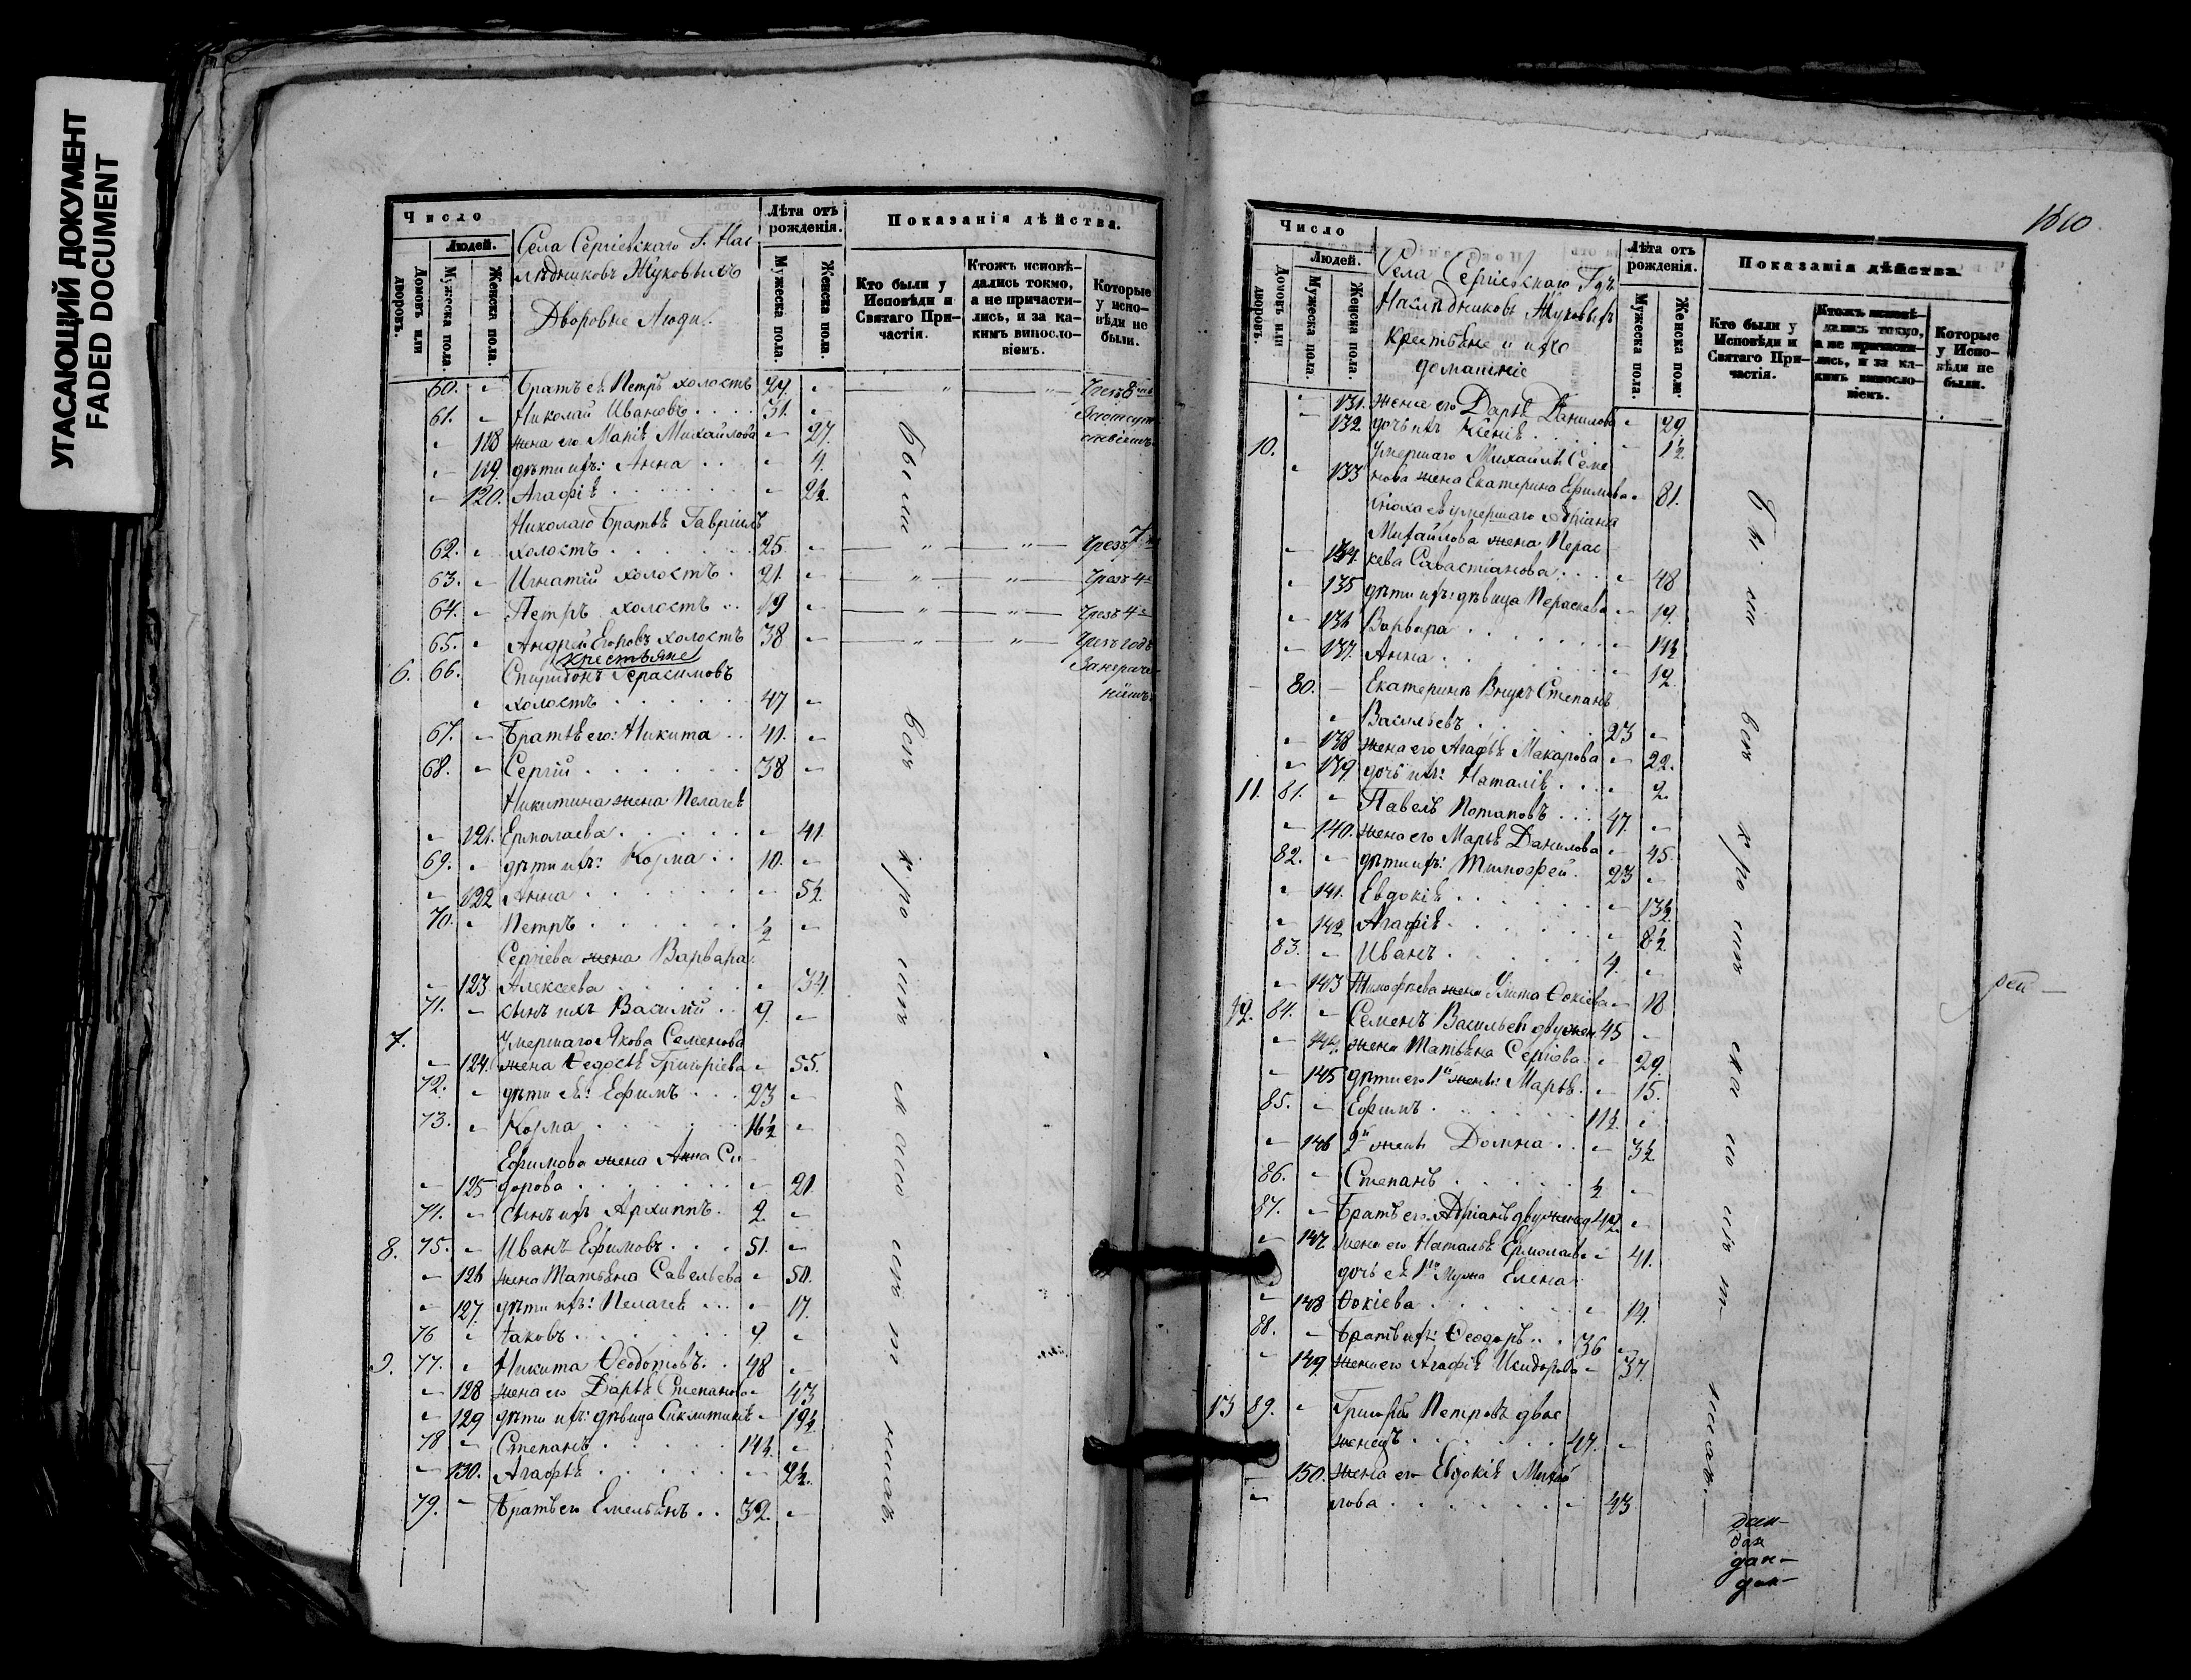 УГАСАЮЩИЙ ДОКУМЕНТ
FADED DOCUMENT
Число
Домовъ или дворовъ.
Людей.
Мужеска пола.
Женска пола.
Села Сергіевскаго Г. Нас
лѣдниковъ Жуковыхъ
Дворовые Люди.
Лѣта отъ рожденія.
Мужеска пола.
Женска пола.
Показанія дѣйства.
Кто были у Исповѣди и Святаго Причастія.
Ктожъ исповѣдались токмо, а не причастились, и за какимъ винословіемъ.
Которые у исповѣди не были.
60. „ Братъ ея Петръ холостъ 24 „
61. „ Николай Ивановъ 31. „
„ 118 жена его Марія Михайлова „ 27.
„ 119. дѣти ихъ: Анна „ 4.
„ 120. Агафія „ 2½.
Николаю Братья Гавріилъ
62. „ холостъ 25. „
63. „ Игнатій холостъ 21. „ Чрезъ 4
64. „ Петръ холостъ 19 „ Чрезъ 4
65. „ Андрей Егоровъ холостъ 38 „ Чрезъ годъ
Крестьяне
6. 66. Спиридонъ Герасимовъ
„ холостъ 47 „
67. „ Братья его: Никита 41. „
68. „ Сергій 38 „
Никитина жена Пелагея
„ 121. Ермолаева „ 41.
69. „ дѣти ихъ: Козма 10. „
„ 122 Анна „ 5½.
70. „ Петръ ½ „
Сергіева жена Варвара
„ 123 Алексеева „ 34.
71. „ сынъ ихъ Василій 9. „
7. Умершаго Якова Семенова
„ 124. жена Ѳедосья Григоріева „ 55.
72. „ дѣти ея: Ефимъ 23 „
73. „ Козма 16½ „
Ефимова жена Анна Си-
„ 125 дорова „ 21.
74. „ сынъ ихъ Архиппъ 2. „
8. 75. „ Иванъ Ефимовъ 51. „
„ 126 жена Татьяна Савельева „ 50.
„ 127. дѣти ихъ: Пелагея „ 17.
76 „ Іаковъ 9 „
9. 77. „ Никита Ѳеодотовъ 48 „
„ 128 жена его Дарья Степанова „ 43
„ 129 дѣти ихъ: дѣвица Сиклитикія „ 19½
78 „ Степанъ 14½ „
„ 130. Агафья „ 2½.
79. „ Братъ его Емельянъ 32. „
Были вси кромѣ малолѣтнихъ
Число
Домовъ или дворовъ.
Людей.
Мужеска пола.
Женска пола.
Села Сергіевскаго Г дъ
Наслѣдниковъ Жуковыхъ
Крестьяне и ихъ
домашніе
Лѣта отъ рожденія.
Мужеска пола.
Женска пола.
Показанія дѣйства.
Кто были у Исповѣди и Святаго Причастія.
Ктожъ исповѣдались токмо, а не причастились, и за какимъ винословіемъ.
Которые у Исповѣди не были.
„ 131. жена его Дарья Данилова „ 29.
„ 132 дочь ихъ Ксенія „ 1½.
10. Умершаго Михаила Семе
„ 133 нова жена Екатерина Ефимова „ 81.
сноха ея умершаго Адріана
Михайлова жена Парас
„ 134. кева Савастіанова „ 48
„ 135 дѣти ихъ: дѣвица Параскева „ 19.
„ 136 Варвара „ 14½
„ 137. Анна „ 12.
80. „ Екатеринѣ Внукъ Степанъ
„ Васильевъ 23 „
„ 138 жена его Агафья Макарова „ 22.
„ 139. дочь ихъ: Наталія „ 2.
11. 81. „ Павелъ Потаповъ 47. „
„ 140. жена его Марья Данилова „ 45.
82. „ дѣти ихъ: Тимофей 23 „
„ 141. Евдокія „ 13½.
„ 142 Агафія „ 8½.
83. „ Иванъ 4. „
„ 143 Тимофеева жена Улита Фокіева „ 18
12. 84. „ Семенъ Васильевъ двужен 45 „
„ 144. жена Татьяна Сергіева „ 29.
„ 145 дѣти его 1й жены: Марья „ 15.
85. „ Ефимъ 11½. „
„ 146 2й жены Домна „ 3½.
86. „ Степанъ ½ „
87. „ Братъ его Адріанъ двужен 42 „
„ 147. жена его Наталья Ермолаева „ 41.
дочь ея 1го Мужа Елена
„ 148 Фокіева „ 14.
88. „ братъ ихъ: Ѳеодоръ 36 „
„ 149. жена его Агафія Исидорова „ 37.
13 89. „ Григорій Петровъ двое
женецъ 47. „
„ 150. жена его Евдокія Михай
„ лова „ 43
Были вси кромѣ малолѣтнихъ